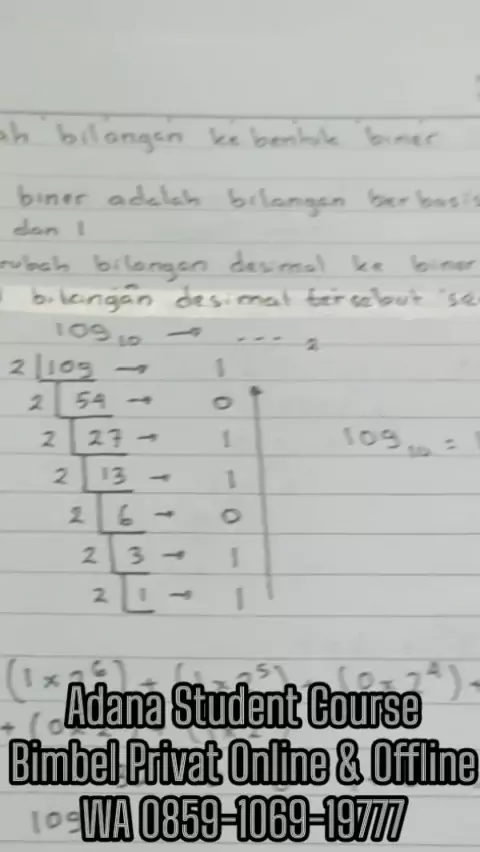 ah bilangan ke bentuk biner
biner adalah bilangan berbasis
dan 1
rubah bilangan desimal ke biner
bilangan desimal tersebut se
109₁₀ → .... ₂
2 109 → 1
2 54 → 0
2 27 → 1 109₁₀ =
2 13 → 1
2 6 → 0
2 3 → 1
2 1 → 1
(1 x 2⁶) + (1 x 2⁵) + (0 x 2⁴) +
Adana Student Course
Bimbel Privat Online & Offline
109
WA 0859-1069-19777